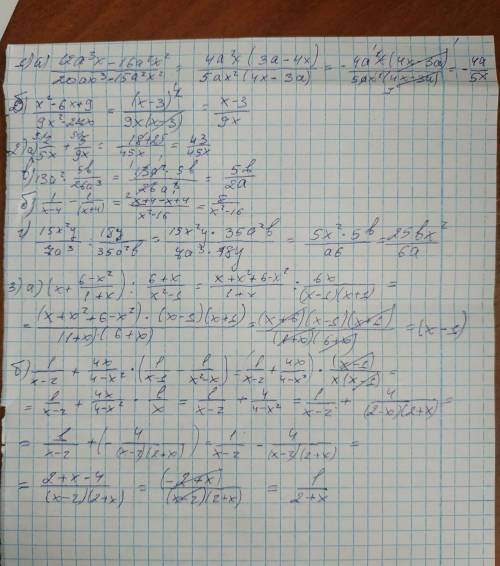 1) а) (12a³x - 16a²x²)/(20ax³ - 15a²x²) = 4a²x(3a-4x)/5ax²(4x-3a) = - 4a²x(4x-3a)/5ax²(4x-3a) = - 4a/5x
б) (x²-6x+9)/(9x²-27x) = (x-3)²/9x(x-3) = (x-3)/9x
2) а) /5x + 5/9x = (18+25)/45x = 43/45x
в) 13a² · 5b/26a³ = 13a²·5b/26a³ = 5b/2a
б) 1/(x-4) - 1/(x+4) = (x+4-x+4)/(x²-16) = /(x²-16)
г) 15x²y/7a³ : 18y/35a²b = 15x²y · 35a²b/7a³ · 18y = 5x²·5b/a6 = 25bx²/6a
3) а) (x + (6-x²)/(1+x)) : (6+x)/(x²-1) = (x+x²+6-x²)/(1+x) · 6x/(x-1)(x+1) =
= (x+x²+6-x²)·(x-1)(x+1)/(1+x)(6+x) = (x+6)(x-1)(x+1)/(1+x)(6+x) = (x-1)
б) 1/(x-2) + 4x/(4-x²) · (1/(x-1) - 1/(x²-x)) = (1/(x-2) + 4x/(4-x²)) · (x-1)/x(x-1) =
= 1/(x-2) + 4x/(4-x²) · 1/x = 1/(x-2) + 4/(4-x²) = 1/(x-2) + 4/(2-x)(2+x) =
= 1/(x-2) + (- 4/(x-2)(2+x)) = 1/(x-2) - 4/(x-2)(2+x) =
= (2+x-4)/(x-2)(2+x) = (-2+x)/(x-2)(2+x) = 1/(2+x)